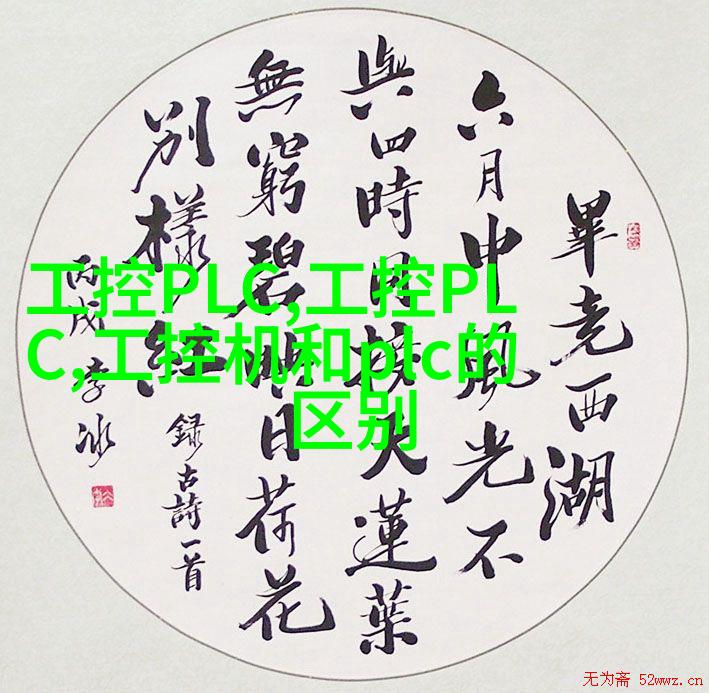 畢竟西湖
六月中風光不
與四時同接天蓮葉
無窮碧映日荷花
別樣紅
錄古詩一首
丙戌李冰
工控PLC,工控PL
C,工控机和plc的
区别
无为斋 52wwz.cn